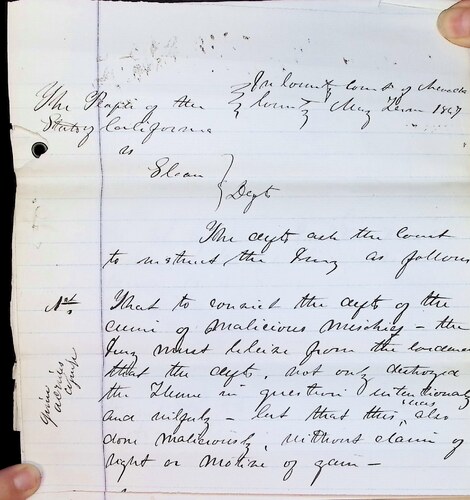 In County Court of Nevada
County May Term 1867
The People of the
State of California
vs
Defts
The defts ask the Court
to instruct the Jury as follows
1st
That to convict the defts of the
crime of Malicious Mischief – the
Jury must believe from the
that the defts. not only destroyed
the Flume in question intentionally
and wilfuly – but that this was also
done maliciously, without claim of
right or motive of gain –
Given